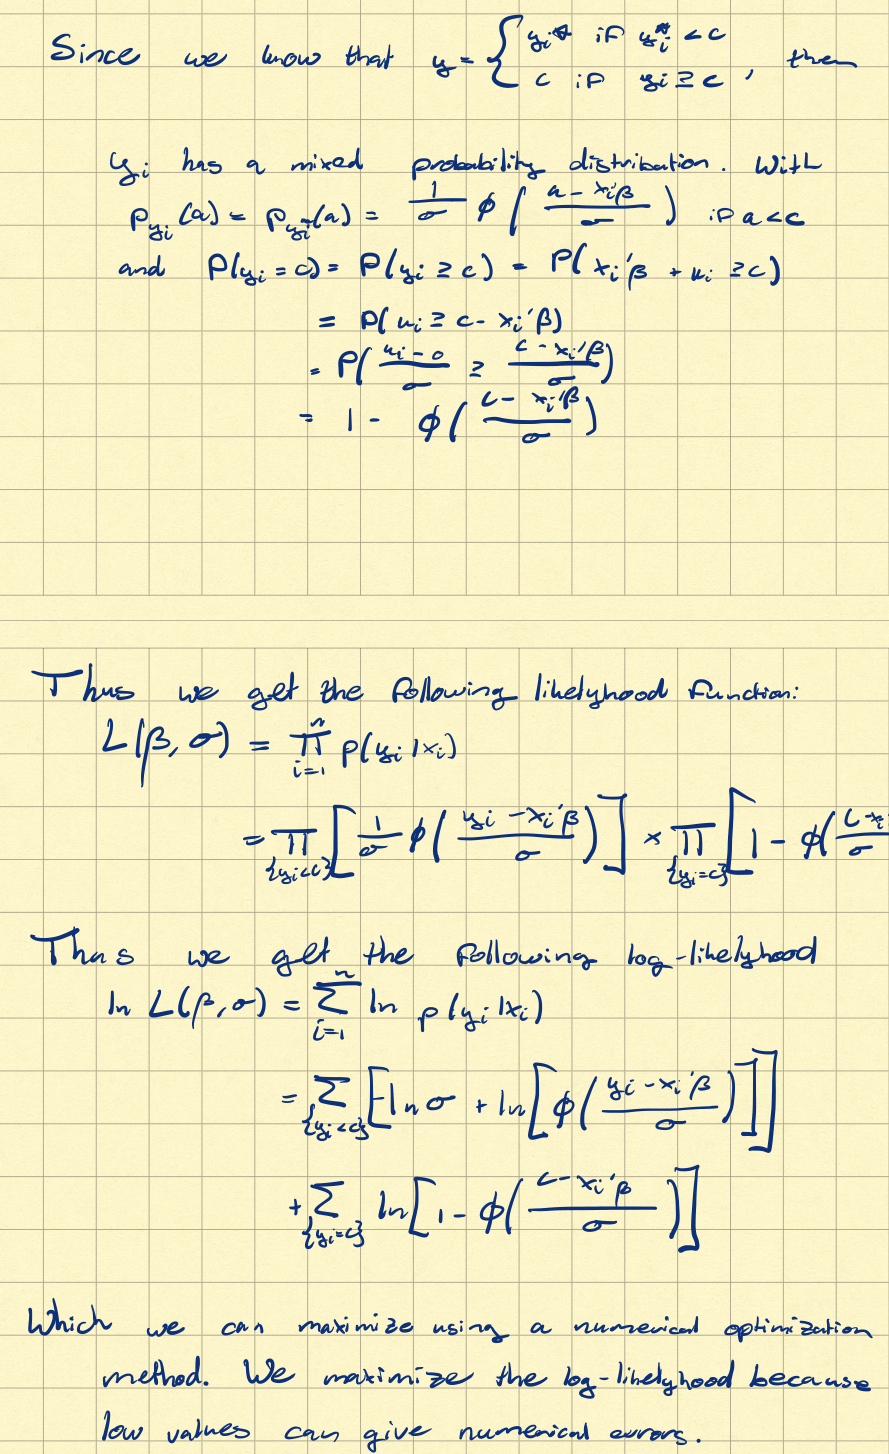 Since we know that y = { y_i* if y_i* < c
c if y_i ≥ c , then
y_i has a mixed probability distribution. With
p_{y_i}(a) = p_{y_i*}(a) = 1/σ ϕ( (a - x_i'β)/σ ) if a < c
and P(y_i = c) = P(y_i ≥ c) = P( x_i'β + u_i ≥ c)
= P(u_i ≥ c - x_i'β)
= P( (u_i - 0)/σ ≥ (c - x_i'β)/σ )
= 1 - ϕ( (c - x_i'β)/σ )
Thus we get the following likelyhood function:
L(β, σ) = ∏_{i=1}^n p(y_i | x_i)
= ∏_{y_i<c} [ 1/σ ϕ( (y_i - x_i'β)/σ ) ] × ∏_{y_i=c} [ 1 - ϕ( (c - x_i/σ
Thus we get the following log-likelyhood
ln L(β, σ) = ∑_{i=1}^n ln p(y_i | x_i)
= ∑_{y_i<c} [ -ln σ + ln[ ϕ( (y_i - x_i'β)/σ ) ] ]
+ ∑_{y_i=c} ln[ 1 - ϕ( (c - x_i'β)/σ ) ]
Which we can maximize using a numerical optimization
method. We maximize the log-likelyhood because
low values can give numerical errors.